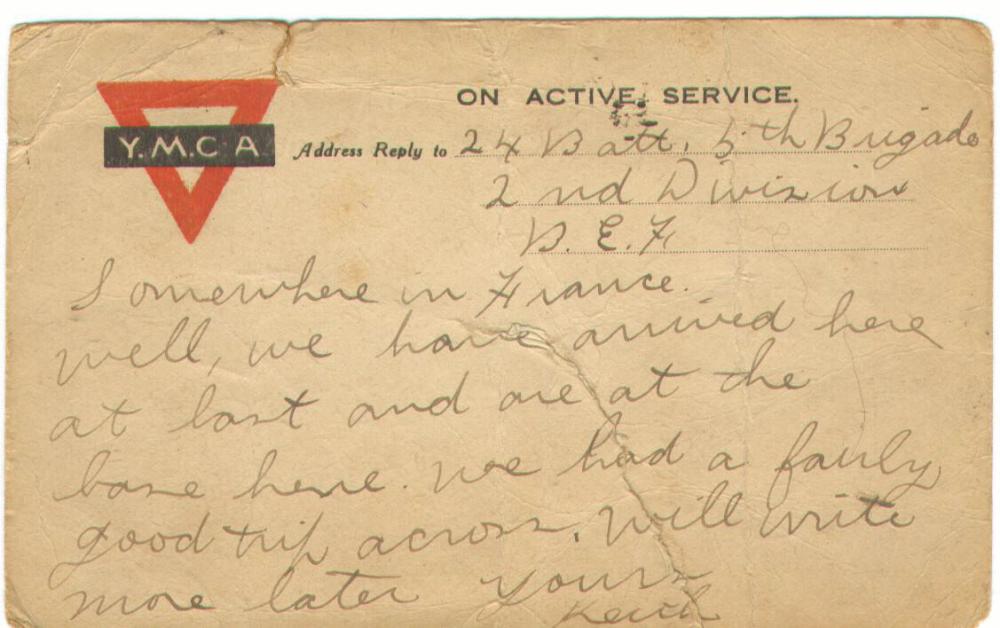 ON ACTIVE SERVICE.
Y.M.C.A.
Address Reply to 24 Batt, 5th Brigade
2nd Division
B.E.F
Somewhere in France.
well, we have arrived here
at last and are at the
base here. we had a fairly
good trip across, will write
more later yours
Keith